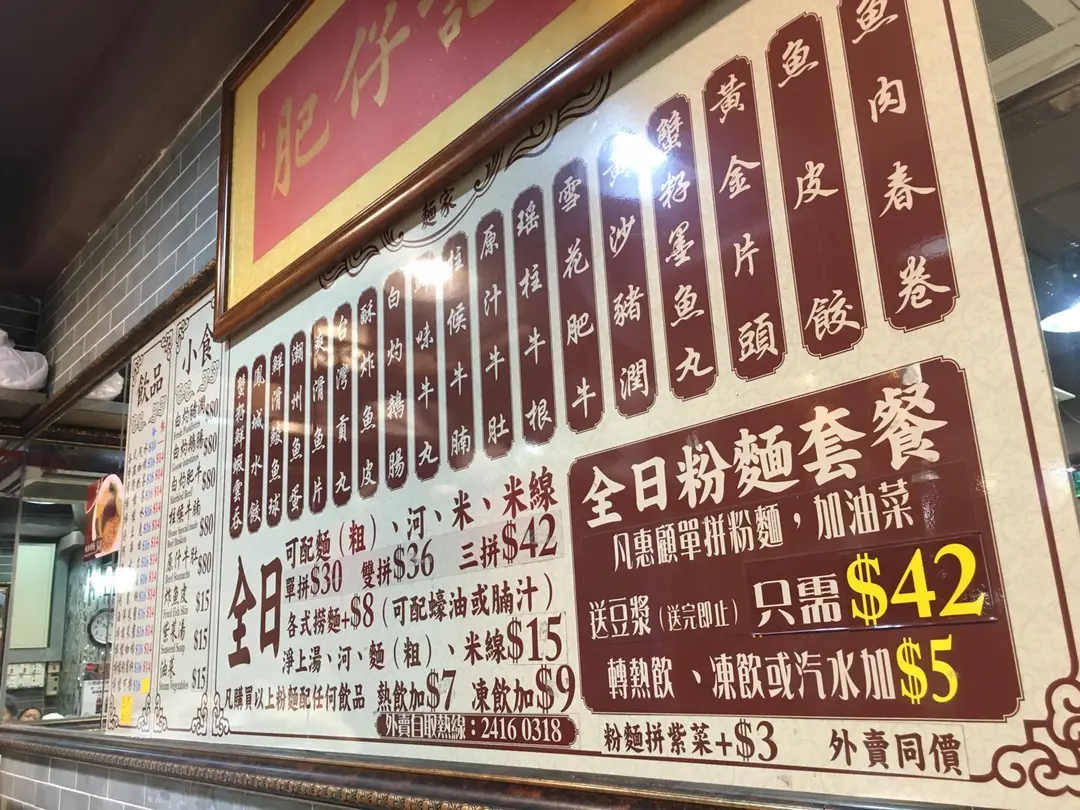 肥仔記
麵家
魚肉春卷
魚皮餃
黃金片頭
蟹籽墨魚丸
黃沙豬潤
雪花肥牛
瑤柱牛根
原汁牛肚
柱侯牛腩
鮮味牛丸
白灼鵝腸
酥炸魚皮
台灣貢丸
爽滑魚片
潮州魚蛋
鮮滑鯪魚球
鳳城水餃
蟹籽鮮蝦雲吞
全日
可配麵（粗）、河、米、米線
單拼$30 雙拼$36 三拼$42
各式撈麵+$8（可配蠔油或腩汁）
淨上湯、河、麵（粗）、米線$15
凡購買以上粉麵配任何飲品 熱飲加$7 凍飲加$9
外賣自取熱線：2416 0318
全日粉麵套餐
凡惠顧單拼粉麵，加油菜
送豆漿（送完即止） 只需$42
轉熱飲、凍飲或汽水加$5
粉麵拼紫菜+$3 外賣同價
小食
白灼豬潤 $80
白灼鵝腸 $80
白灼肥牛 $80
柱侯牛腩 $80
原汁牛肚 $80
炸魚皮 $15
Fried Fish Skin
紫菜湯 $15
Seaweed Soup
油菜 $15
飲品